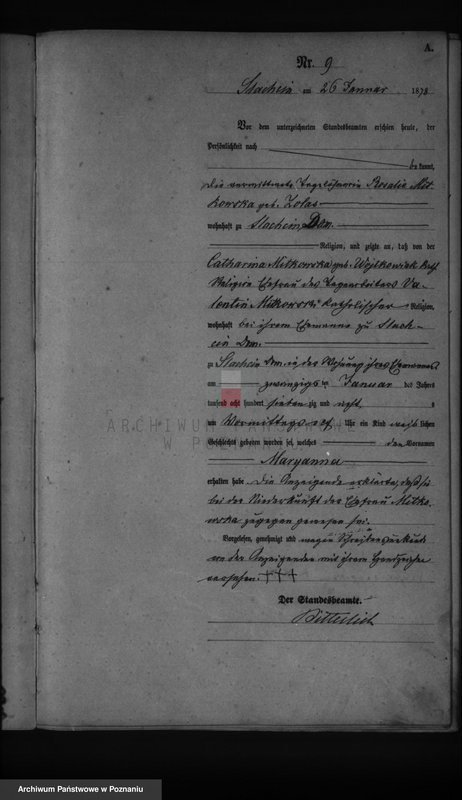 A.
Nr. 9
Stachcin am 26 Januar 1878
Vor dem unterzeichneten Standesbeamten erschien heute, der
Persönlichkeit nach
bekannt,
die verwittwete Tagelöhnerin Rosalie Mit-
kowska geb.
wohnhaft zu Dom.
Religion, und zeigte an, daß von der
Catharina Mitkowska geb. Wojtkowiak kath.
Religion Ehefrau des Tagearbeiters Va-
lentin Mitkowski katholischer Religion,
wohnhaft bei ihrem Ehemanne zu Stach-
cin Dom.
zu Stachcin Dom. in der Wohnung ihres Ehemannes
am zwanzigsten Januar des Jahres
tausend acht hundert siebenzig und acht
Vormittags um Uhr ein Kind weiblichen
Geschlechts geboren worden sei, welches den Vornamen
Maryanna
erhalten habe. Die Anzeigende erklärte, daß sie
bei der Niederkunft der Ehefrau Mitko-
wska zugegen gewesen sei.
Vorgelesen, genehmigt und wegen Schreibensunkunde
von der Anzeigenden mit ihrem Handzeichen
versehen. +++
Der Standesbeamte.
Bitterlich
ARCHIWUM PAŃSTWOWE
W POZNANIU
Archiwum Państwowe w Poznaniu